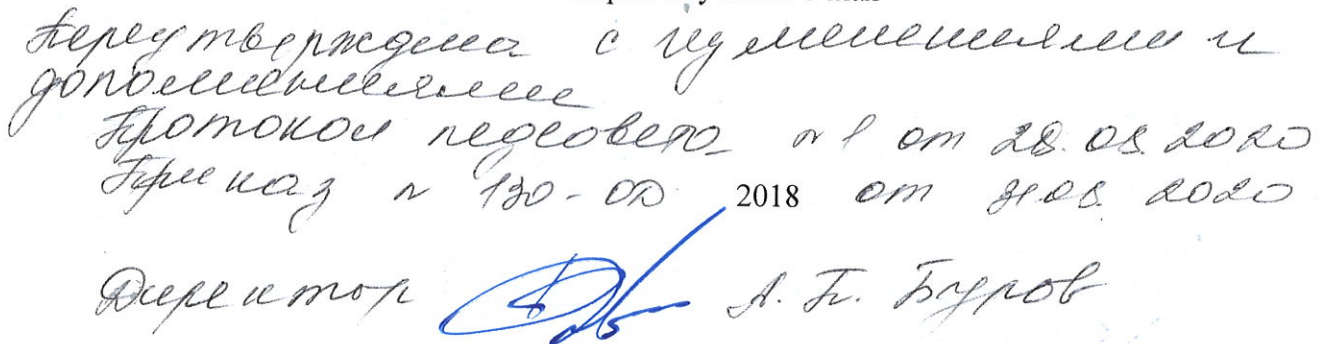 Переутверждена с изменениями и
дополнениями
Протокол педсовета №1 от 28.08.2020
Приказ № 130-ОД 2018 от 31.08.2020
Директор А. П. Буров